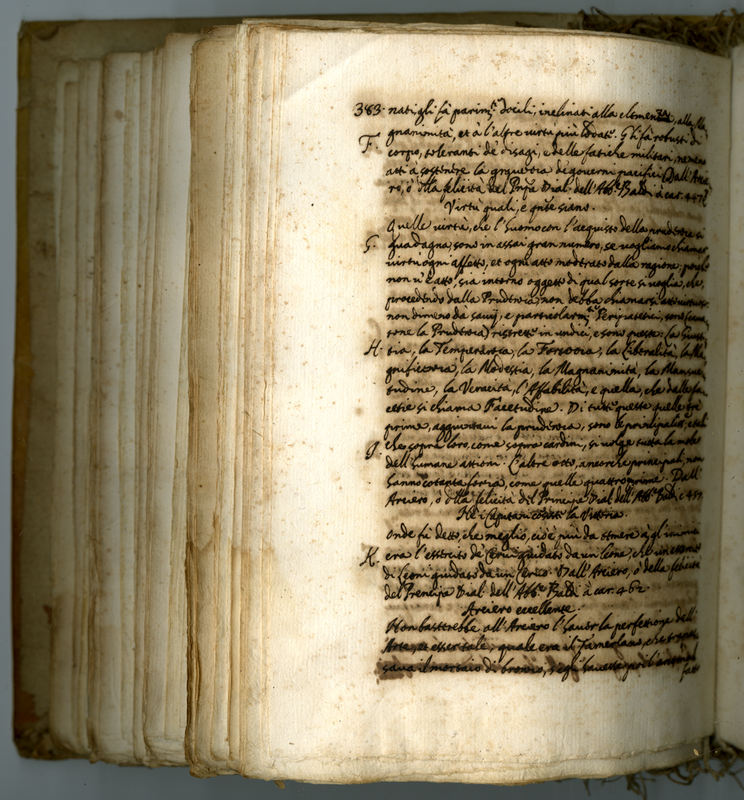 383. nati gli fà parim.te docili, inclinati alla clemenza, alla Ma
gnanimità, et à l'altre virtù più lodate. Gli fà robusti di
F. corpo, toleranti de' disagi, e delle fatiche militari, ne meno
atti à sostenere la de' governi pacifici. Dall'Arcie
ro, ò d'lla felicità del Prnpe Dial. dell'Abb.e Baldi à car. 447
Virtù quali, e qnte siano.
Quelle virtù, che l'huomo con l'acquisto della prudenza si
G. guadagna, sono in assai gran numero, se vogliamo chiamar
virtù ogni affetto, et ogni atto moderato dalla ragione; poiche
non v'è atto, sia intorno oggetto di qual sorte si voglia, che,
procedendo dalla Prudenza, non debba chiamarsi atto virtuoso
non dimeno dà savij, e particolarm.te Peripatetici, sono
la Prudenza) ristrette in undici, e sono queste: la Giusti
H. tia, la Temperanza, la Fortezza, la Liberalità, la Ma
gnificenza, la Modestia, la Magnanimità, la Mansue
tudine, la Veracità, l'Affabilità, e quella, che dalle fa
cetie si chiama Facetudine. Di tutte queste quelle tre
prime, aggiuntavi la prudenza, sono le principalis.me, e tali
J. che sopra loro, come sopra cardini, si volge tutta la mole
dell'humane attioni. L'altre otto, ancorche principali, non
hanno cotanta forza, come quelle quattro prime. Dall'
Arciero, ò d'lla felicità del Principe Dial. dell'Abb.e Baldi c. 457.
Ne i Capitani consiste la Vittoria.
Onde fù detto, che meglio, cioè più da temere à gli inimici
K. era l'essercito de' Cervi guidato da un Leone, che
di Leoni guidato da un Cervo. Dall'Arciero, ò della felicità
del Prencipe Dial. dell'Abb.e Baldi à car. 462.
Arciero eccellente.
Non bastarebbe all'Arciero l'haver la perfettione dell'
Arte, et esser tale, quale era il Tamerlano, che trapas
sava il mortaio di bronzo, s'egli havesse poi l'arco
fat